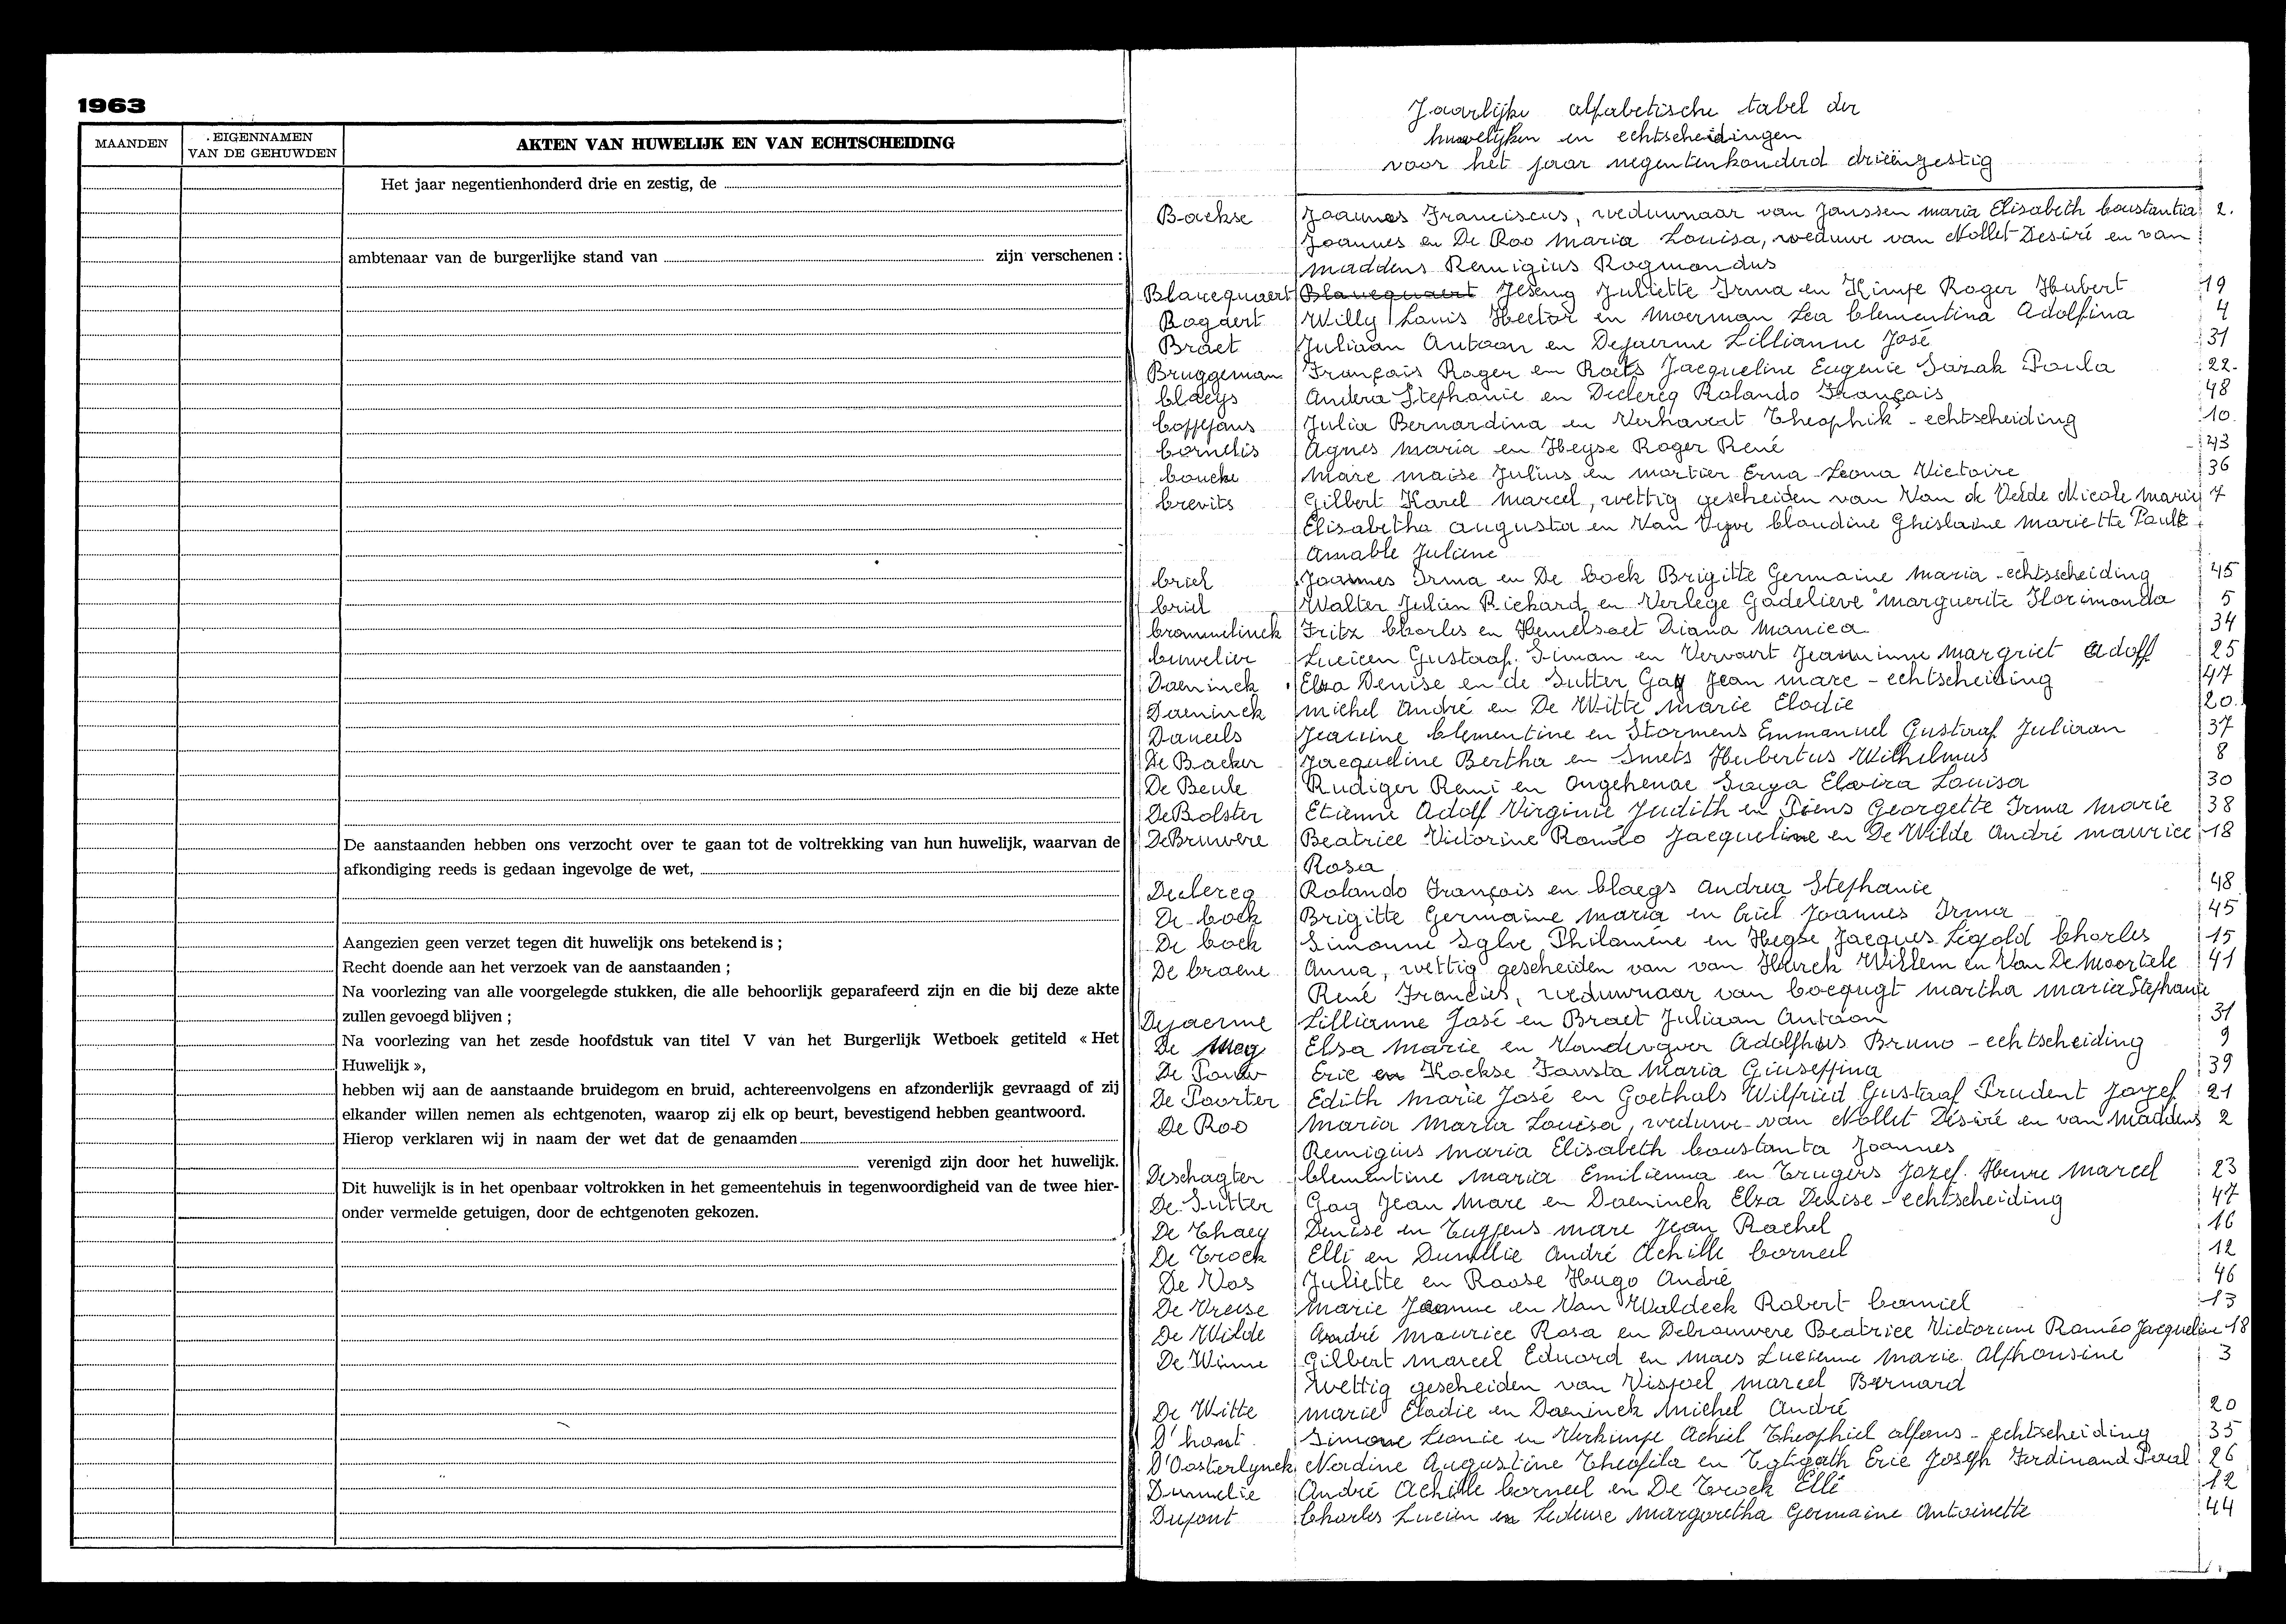 1963
MAANDEN
EIGENNAMEN
VAN DE GEHUWDEN
AKTEN VAN HUWELIJK EN VAN ECHTSCHEIDING
Het jaar negentienhonderd drie en zestig, de
ambtenaar van de burgerlijke stand van zijn verschenen :
De aanstaanden hebben ons verzocht over te gaan tot de voltrekking van hun huwelijk, waarvan de
afkondiging reeds is gedaan ingevolge de wet,
Aangezien geen verzet tegen dit huwelijk ons betekend is ;
Recht doende aan het verzoek van de aanstaanden ;
Na voorlezing van alle voorgelegde stukken, die alle behoorlijk geparafeerd zijn en die bij deze akte
zullen gevoegd blijven ;
Na voorlezing van het zesde hoofdstuk van titel V van het Burgerlijk Wetboek getiteld « Het
Huwelijk »,
hebben wij aan de aanstaande bruidegom en bruid, achtereenvolgens en afzonderlijk gevraagd of zij
elkander willen nemen als echtgenoten, waarop zij elk op beurt, bevestigend hebben geantwoord.
Hierop verklaren wij in naam der wet dat de genaamden
verenigd zijn door het huwelijk.
Dit huwelijk is in het openbaar voltrokken in het gemeentehuis in tegenwoordigheid van de twee hier-
onder vermelde getuigen, door de echtgenoten gekozen.
Jaarlijke alfabetische tabel der
huwelijken en echtscheidingen
voor het jaar negentienhonderd drieënzestig
Backse Joannes Franciscus, weduwnaar van Janssen Maria Elisabeth Constantia 2.
Joannes en De Roo Maria Louisa, weduwe van Nollet Desiré en van
Maddens Remigius Rogmondus
Blancquaert Blancquaert Juliette Irma en Kimpe Roger Hubert 19
Bogaert Willy Louis Hector en Moerman Lea Clementina Adolfina 4
Braet Juliaan Antoon en Dejaeme Lillianne José 31
Bruggeman François Roger en Roets Jacqueline Eugenie Sarah Paula 22.
Claeys Andera Stephanie en Declercq Rolando François 48
Coffijans Julia Bernardina en Verhavert Theophile - echtscheiding 10.
Cornelis Agnes Maria en Heyse Roger René 43
Coucke Marc Maise Julius en Mortier Erna Leona Victoire 36
Crevits Gilbert Karel Marcel, wettig gescheiden van Van de Velde Nicole Maria 7
Elisabetha Augusta en Van Vyve Claudine Ghislaine Mariette Paule
Amable Juliene
Criel Joannes Irma en De Cock Brigitte Germaine Maria - echtsscheiding 45
Criel Walter Julien Richard en Verlege Godelieve Marguerite Florimonda 5
Crommelinck Fritz Charles en Hemelsoet Diana Monica 34
Cuvelier Lucien Gustaaf Siman en Vervaert Jeaninne Margriet Adolf 25
Daeninck Elza Denise en de Sutter Gay Jean Marc - echtscheiding 47
Daeninck Michel André en De Witte Marie Elodie 20.
Daneels Jeanine Clementine en Stormens Emmanuel Gustaaf Juliaan 37
De Backer Jacqueline Bertha en Smets Hubertus Wilhelmus 8
De Beule Rudiger Remi en Ongehenae Soeya Elvira Louisa 30
De Bolster Etienne Adolf Virginie Judith en Diens Georgette Irma Marie 38
De Bruwere Beatrice Victorine Roméo Jacqueline en De Wilde André Maurice 18
Rosa
Declercq Rolando François en Claeys Andrea Stephanie 48
De Cock Brigitte Germaine Maria en Criel Joannes Irma 45
De Cock Simonne Sylve Philomène en Heyse Jacques Légold Charles 15
De Craene Anna, wettig gescheiden van van Hurck Willem en Van De Moortele 41
René Francies, weduwnaar van Coeguyt Martha Maria Stephanie
Dejaeme Lillianne José en Braet Juliaan Antoon 31
De Mey Elsa Marie en Vandevyver Adolphus Bruno - echtscheiding 9
De Pauw Eric en Kockse Fausta Maria Giuseppina 39
De Poorter Edith Marie José en Goethals Wilfried Gustaaf Prudent Jozef 21
De Roo Maria Maria Louisa, weduwe van Nollet Désiré en van Maddens 2
Remigius Maria Elisabeth Constanta Joannes
Deschagter Clementine Maria Emilienna en Crugers Jozef Henre Marcel 23
De Sutter Gay Jean Marc en Daeninck Elza Denise - echtscheiding 47
De Thaey Denise en Tuyfens Marc Jean Rachel 16
De Crock Elli en Dumelie André Achille Corneel 12
De Vos Juliette en Roose Hugo André 46
De Vreise Marie Jeanne en Van Waldeck Robert Camiel 13
De Wilde André Maurice Rosa en Debrouwere Beatrice Victorine Roméo Jacqueline 18
De Winne Gilbert Marcel Eduard en Maes Lucienne Marie Alphonsine 3
Wettig gescheiden van Vispoel Marcel Bernard
De Witte Marie Elodie en Daeninck Michel André 20
D'hont Simone Leonie en Verkimpe Achiel Theophiel Alfons - echtscheiding 35
D'Oosterlynck Nadine Augustine Theofila en Eric Joseph Ferdinand 26
Dumelie André Achille Corneel en De Crock Elli 12
Dupont Charles Lucien en Ledeuse Margaretha Germaine Antoinette 44